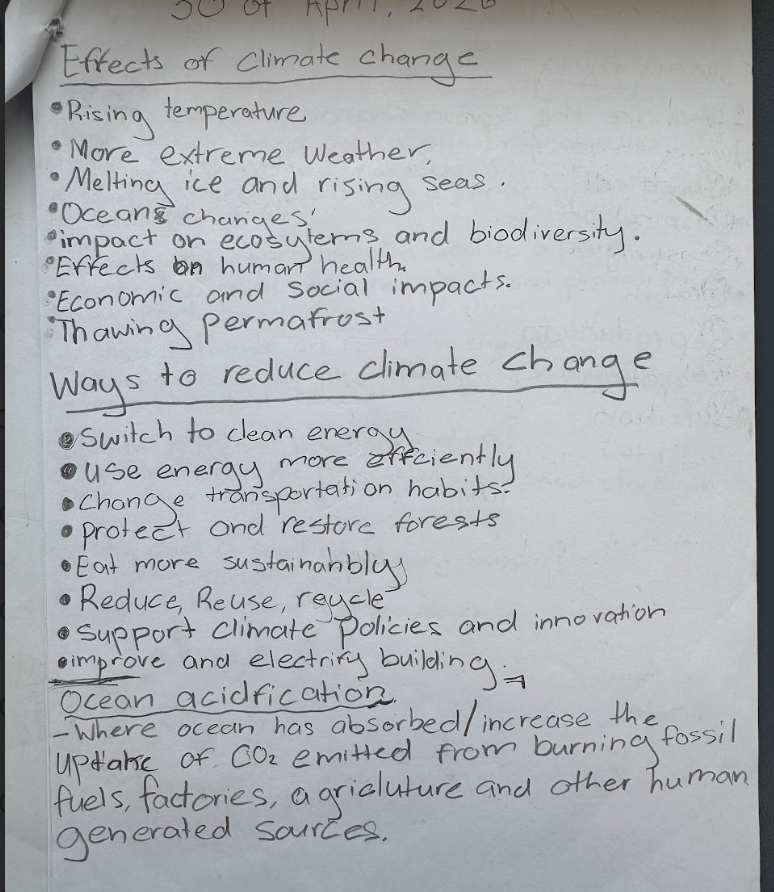 30 of April, 2026
Effects of climate change
•Rising temperature
•More extreme Weather.
•Melting ice and rising seas.
•Oceans changes
•impact on ecosytems and biodiversity.
•Effects on human health.
•Economic and Social impacts.
•Thawing permafrost
Ways to reduce climate change
•Switch to clean energy
•use energy more effciently
•Change transportation habits.
•protect and restore forests
•Eat more sustainahbly
•Reduce, Reuse, reycle
•Support Climate Policies and innovation
•improve and electrify building.
Ocean acidfication
-Where ocean has absorbed/increase the
uptake of CO₂ emitted from burning fossil
fuels, factories, agricluture and other human
generated sources.